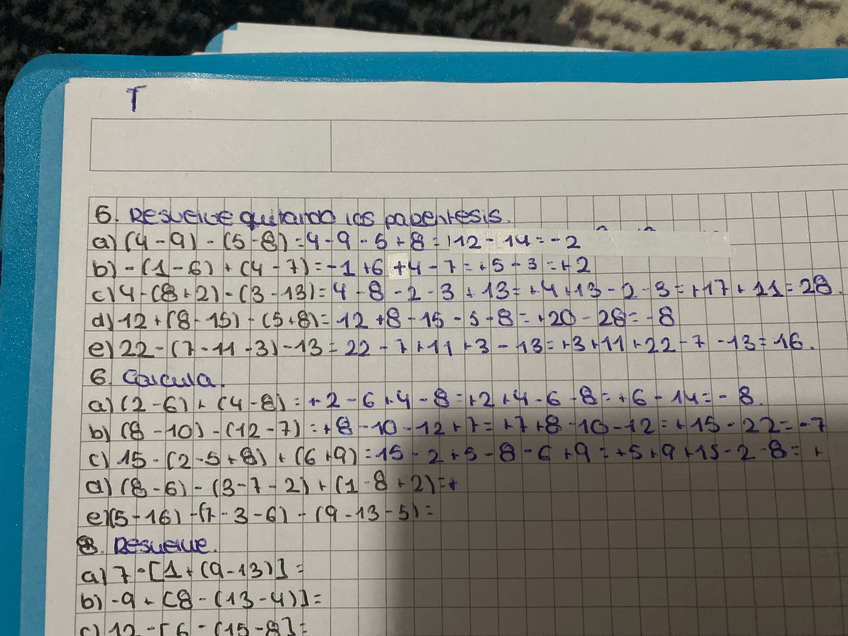 T
5. Resuelve quitando los parentesis.
a) (4-9)-(5-8)=4-9-5+8=+12-14=-2
b) -(1-6)+(4-7)=-1+6+4-7=+5-3=+2
c) 4-(8+2)-(3-13)=4-8-2-3+13=+4+13-2-3=+17+11=28.
d) 12+(8-15)-(5+8)=12+8-15-5-8=+20-28=-8
e) 22-(7-11-3)-13=22-7+11+3-13=+3+11+22-7-13=16.
6. Calcula.
a) (2-6)+(4-8)=+2-6+4-8=+2+4-6-8=+6-14=-8.
b) (8-10)-(12-7)=+8-10-12+7=+7+8-10-12=+15-22=-7
c) 15-(2-5+8)+(6+9)=15-2+5-8-6+9=+5+9+15-2-8=+
d) (8-6)-(3-7-2)+(1-8+2)=+
e) (5-16)-(7-3-6)-(9-13-5)=
8. Resuelve.
a) 7-[1+(9-13)]=
b) -9+[8-(13-4)]=
c) 12-[6-(15-8]=